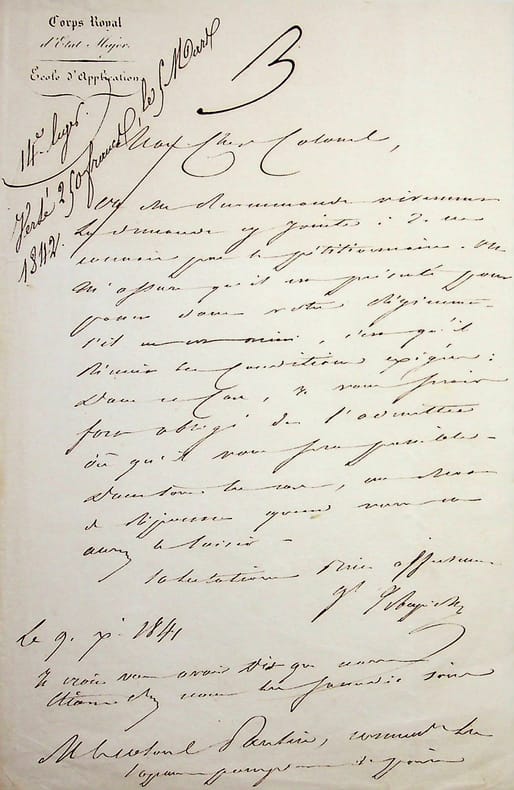 Corps Royal
d'Etat Major.
Ecole d'Application
14e leger.
Versé 250 francs, le 5 Mars
1842.
Mon Cher Colonel,
On me Recommande vivement
la demande cy jointe : Je ne
connais pas le pétitionnaire. On
m'assure qu'il se présente pour
dans votre Régiment
s'il , c'est qu'il
Réunit les Conditions exigées :
Dans ce Cas, je vous serais
fort obligé de l'admettre
dès qu'il vous sera possible -
Dans tous les cas, un mot
de Réponse quand vous en
aurez le loisir -
Salutations bien affectueuses
Le 9. 1841
Je crois vous avoir dit que nous
étions chez nous les samedis soirs
M le colonel Paulin, commandt les
sapeurs pompiers de Paris